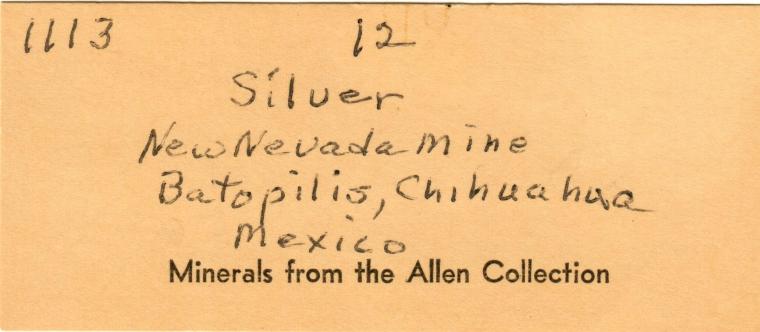 1113 12
Silver
New Nevada Mine
Batopilis, Chihuahua
Mexico
Minerals from the Allen Collection